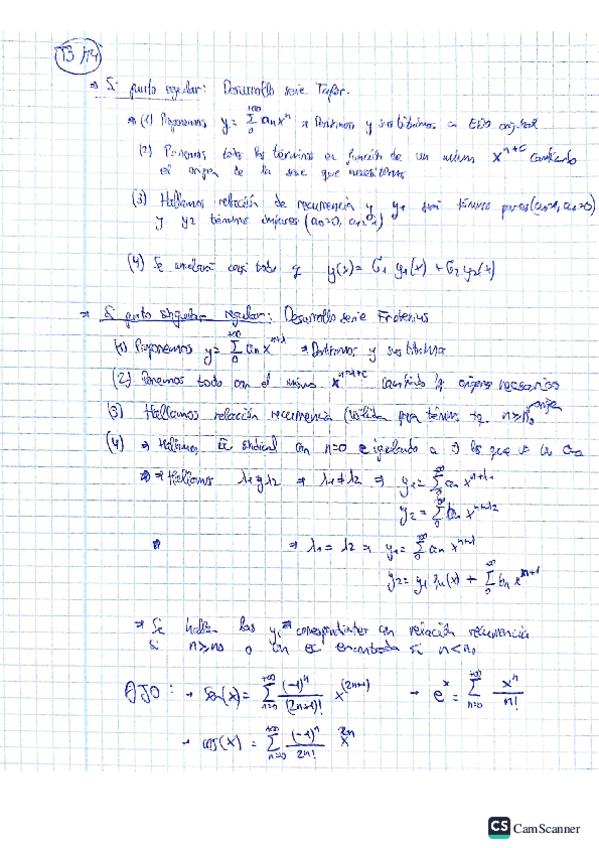 T3 / T4
→ Si punto regular: Desarrollo serie Taylor.
→ (1) Proponemos y = Σ_0^{+∞} a_n x^n → Derivamos y sustituimos en EDO original
(2) Ponemos todos los términos en función de un mismo x^{n+c} cambiando
el origen de la serie que necesitemos
(3) Hallamos relación de recurrencia y y_1 será términos pares (a_0=1, a_1=0)
y y_2 términos impares (a_0=0, a_1=1)
(4) Se y(x) = C_1 y_1(x) + C_2 y_2(x)
→ Si punto singular regular: Desarrollo serie Frobenius
(1) Proponemos y = Σ_0^{+∞} a_n x^{n+λ} → Derivamos y sustituimos
(2) Ponemos todo con el mismo x^{n+λ+c} cambiando orígenes necesarios
(3) Hallamos relación recurrencia (válida para términos tq. n ≥ n_0
(4) → Hallamos Ec indicial con n=0 e igualando a 0 los que
→ Hallamos λ_1 y λ_2 → λ_1 ≠ λ_2 → y_1 = Σ_0^∞ a_n x^{n+λ_1}
y_2 = Σ_0^∞ b_n x^{n+λ_2}
→ λ_1 = λ_2 → y_1 = Σ_0^∞ a_n x^{n+λ}
y_2 = y_1 ln(x) + Σ_0^∞ b_n x^{n+λ}
→ Se hallan las y_i correspondientes con relación recurrencia
si n ≥ n_0 o con ec encontrada si n < n_0
OJO: → sen(x) = Σ_{n=0}^{+∞} (-1)^n / (2n+1)! x^{(2n+1)} → e^x = Σ_{n=0}^{+∞} x^n / n!
→ cos(x) = Σ_{n=0}^{+∞} (-1)^n / 2n! x^{2n}
CS CamScanner